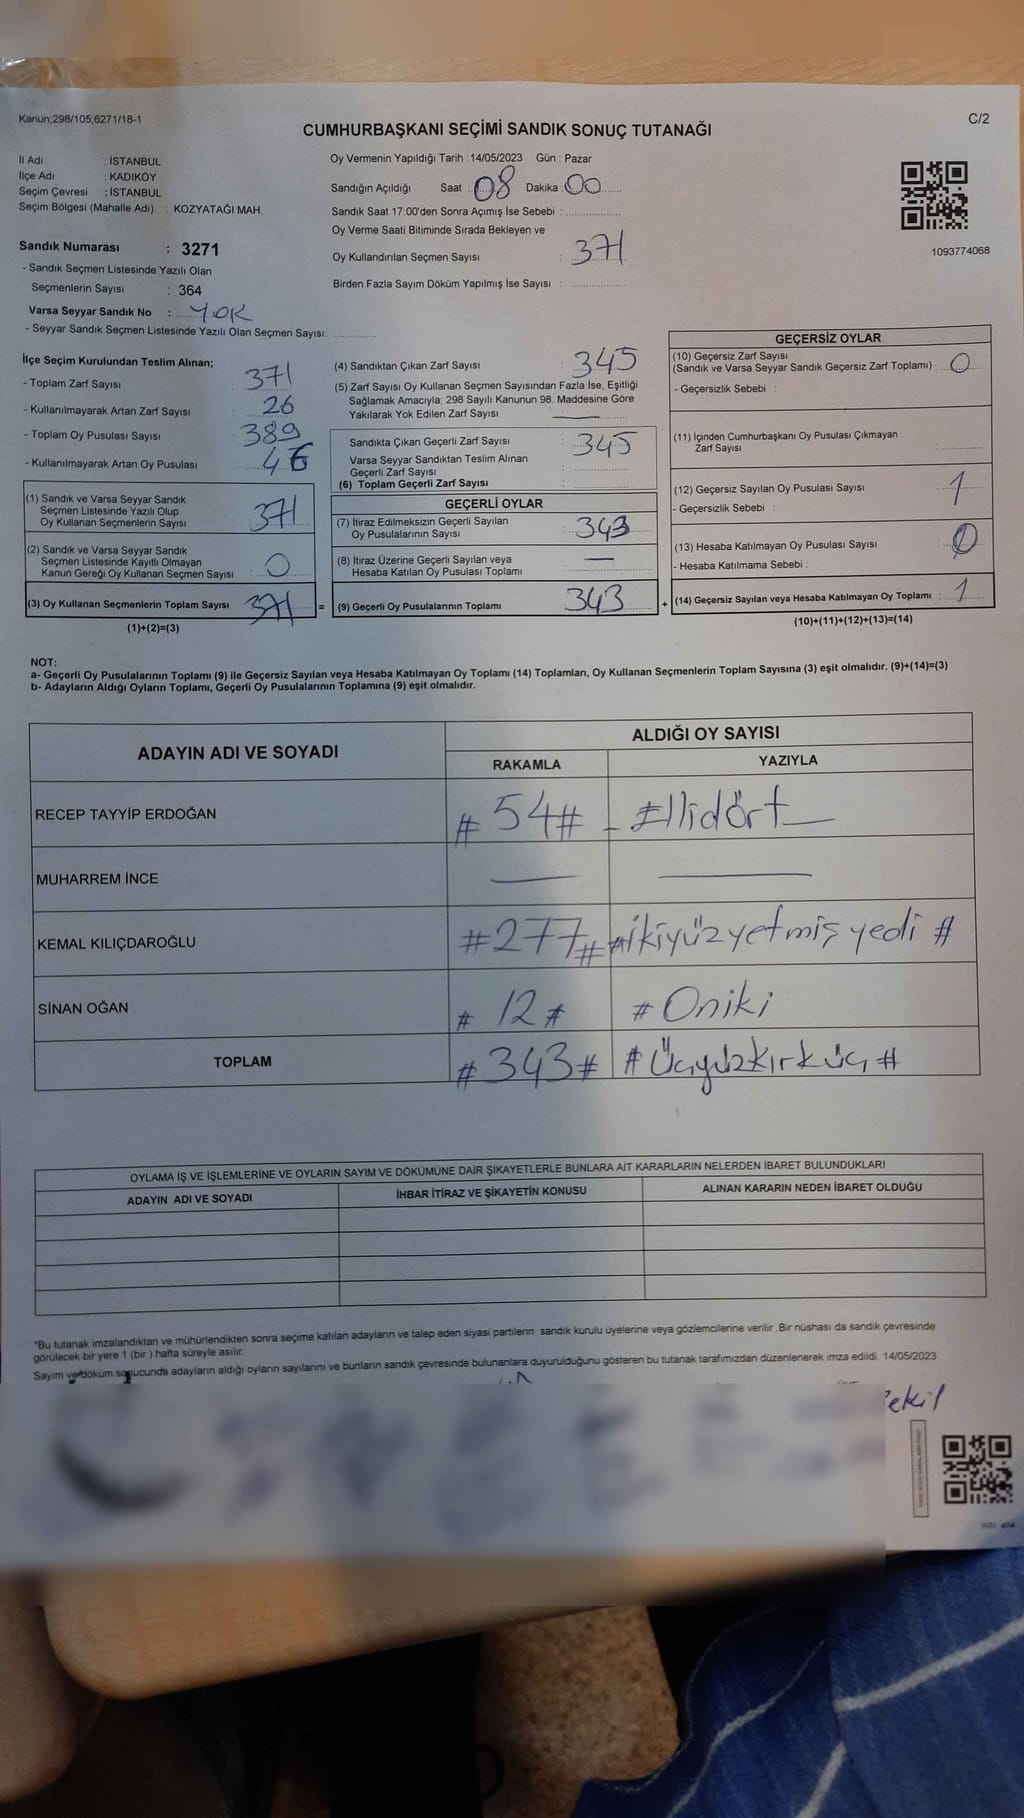 Kanun;298/105,6271/18-1
C/2
CUMHURBAŞKANI SEÇİMİ SANDIK SONUÇ TUTANAĞI
İl Adı : İSTANBUL
İlçe Adı : KADIKÖY
Seçim Çevresi : İSTANBUL
Seçim Bölgesi (Mahalle Adı) : KOZYATAĞI MAH.
Sandık Numarası : 3271
- Sandık Seçmen Listesinde Yazılı Olan
Seçmenlerin Sayısı : 364
Varsa Seyyar Sandık No : YOK
- Seyyar Sandık Seçmen Listesinde Yazılı Olan Seçmen Sayısı:
Oy Vermenin Yapıldığı Tarih : 14/05/2023 Gün : Pazar
Sandığın Açıldığı Saat : 08 Dakika : 00
Sandık Saat 17:00'den Sonra Açımış İse Sebebi :
Oy Verme Saati Bitiminde Sırada Bekleyen ve
Oy Kullandırılan Seçmen Sayısı : 371
Birden Fazla Sayım Döküm Yapılmış İse Sayısı :
1093774068
İlçe Seçim Kurulundan Teslim Alınan;
- Toplam Zarf Sayısı : 371
- Kullanılmayarak Artan Zarf Sayısı : 26
- Toplam Oy Pusulası Sayısı : 389
- Kullanılmayarak Artan Oy Pusulası : 46
(1) Sandık ve Varsa Seyyar Sandık
Seçmen Listesinde Yazılı Olup
Oy Kullanan Seçmenlerin Sayısı : 371
(2) Sandık ve Varsa Seyyar Sandık
Seçmen Listesinde Kayıtlı Olmayan
Kanun Gereği Oy Kullanan Seçmen Sayısı : 0
(3) Oy Kullanan Seçmenlerin Toplam Sayısı : 371 =
(1)+(2)=(3)
(4) Sandıktan Çıkan Zarf Sayısı : 345
(5) Zarf Sayısı Oy Kullanan Seçmen Sayısından Fazla İse, Eşitliği
Sağlamak Amacıyla; 298 Sayılı Kanunun 98. Maddesine Göre
Yakılarak Yok Edilen Zarf Sayısı : —
Sandıkta Çıkan Geçerli Zarf Sayısı : 345
Varsa Seyyar Sandıktan Teslim Alınan
Geçerli Zarf Sayısı :
(6) Toplam Geçerli Zarf Sayısı :
GEÇERLİ OYLAR
(7) İtiraz Edilmeksizin Geçerli Sayılan
Oy Pusulalarının Sayısı : 343
(8) İtiraz Üzerine Geçerli Sayılan veya
Hesaba Katılan Oy Pusulası Toplamı : —
(9) Geçerli Oy Pusulalarının Toplamı : 343 +
GEÇERSİZ OYLAR
(10) Geçersiz Zarf Sayısı
(Sandık ve Varsa Seyyar Sandık Geçersiz Zarf Toplamı) : 0
- Geçersizlik Sebebi :
(11) İçinden Cumhurbaşkanı Oy Pusulası Çıkmayan
Zarf Sayısı :
(12) Geçersiz Sayılan Oy Pusulası Sayısı : 1
- Geçersizlik Sebebi :
(13) Hesaba Katılmayan Oy Pusulası Sayısı : 0
- Hesaba Katılmama Sebebi :
(14) Geçersiz Sayılan veya Hesaba Katılmayan Oy Toplamı : 1
(10)+(11)+(12)+(13)=(14)
NOT:
a- Geçerli Oy Pusulalarının Toplamı (9) ile Geçersiz Sayılan veya Hesaba Katılmayan Oy Toplamı (14) Toplamları, Oy Kullanan Seçmenlerin Toplam Sayısına (3) eşit olmalıdır. (9)+(14)=(3)
b- Adayların Aldığı Oyların Toplamı, Geçerli Oy Pusulalarının Toplamına (9) eşit olmalıdır.
ADAYIN ADI VE SOYADI ALDIĞI OY SAYISI
RAKAMLA YAZIYLA
RECEP TAYYİP ERDOĞAN #54# - Ellidört —
MUHARREM İNCE — —
KEMAL KILIÇDAROĞLU #277# #ikiyüzyetmiş yedi #
SİNAN OĞAN # 12 # # Oniki
TOPLAM #343# # Üçyüzkırküç #
OYLAMA İŞ VE İŞLEMLERİNE VE OYLARIN SAYIM VE DÖKÜMÜNE DAİR ŞİKAYETLERLE BUNLARA AİT KARARLARIN NELERDEN İBARET BULUNDUKLARI
ADAYIN ADI VE SOYADI İHBAR İTİRAZ VE ŞİKAYETİN KONUSU ALINAN KARARIN NEDEN İBARET OLDUĞU
*Bu tutanak imzalandıktan ve mühürlendikten sonra seçime katılan adayların ve talep eden siyasi partilerin sandık kurulu üyelerine veya gözlemcilerine verilir. Bir nüshası da sandık çevresinde
görülecek bir yere 1 (bir ) hafta süreyle asılır.
Sayım ve döküm sonucunda adayların aldığı oyların sayılarını ve bunların sandık çevresinde bulunanlara duyurulduğunu gösteren bu tutanak tarafımızdan düzenlenerek imza edildi. 14/05/2023